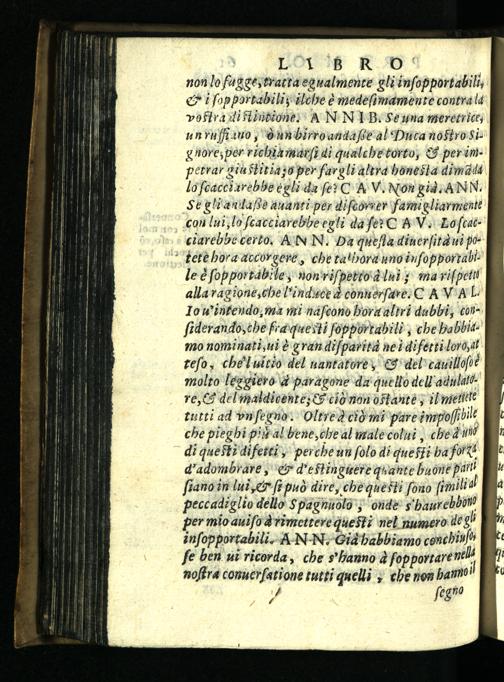 LIBRO
non lo fugge, tratta egualmente gli insopportabili,
& i sopportabili; ilche è medesimamente contra la
vostra distintione. ANNIB. Se una meretrice,
un ruffiano, ò un birro andaße al Duca nostro Si-
gnore, per richiamarsi di qualche torto, & per im-
petrar giustitia; o per fargli altra honesta dimãda
lo scacciarebbe egli da se? CAV. Non già. ANN.
Se gli andaße auanti per discorrer famigliarmente
con lui, lo scacciarebbe egli da se? CAV. Lo scac-
ciarebbe certo. ANN. Da questa diuersità ui po-
tete hora accorgere, che tal'hora uno insopportabi-
le è sopportabile, non rispetto à lui; ma rispetto
alla ragione, che l'induce à conuersare. CAVAL.
Io u'intendo, ma mi nascono hora altri dubbi, con-
siderando, che fra questi sopportabili, che habbia-
mo nominati, ui è gran disparità ne i difetti loro, at
teso, che'l uitio del uantatore, & del cauilloso è
molto leggiero à paragone da quello dell'adulato-
re, & del maldicente; & ciò non ostante, il mettete
tutti ad vn segno. Oltre à ciò mi pare impossibile
che pieghi più al bene, che al male colui, che à uno
di questi difetti, perche un solo di questi ha forza
d'adombrare, & d'estinguere quante buone parti
siano in lui, & si può dire, che questi sono simili al
peccadiglio dello Spagnuolo, onde s'haurebbono
per mio auiso à rimettere questi nel numero de gli
insopportabili. ANN. Già habbiamo conchiuso,
se ben ui ricorda, che s'hanno à sopportare nella
nostra conuersatione tutti quelli, che non hanno il
segno